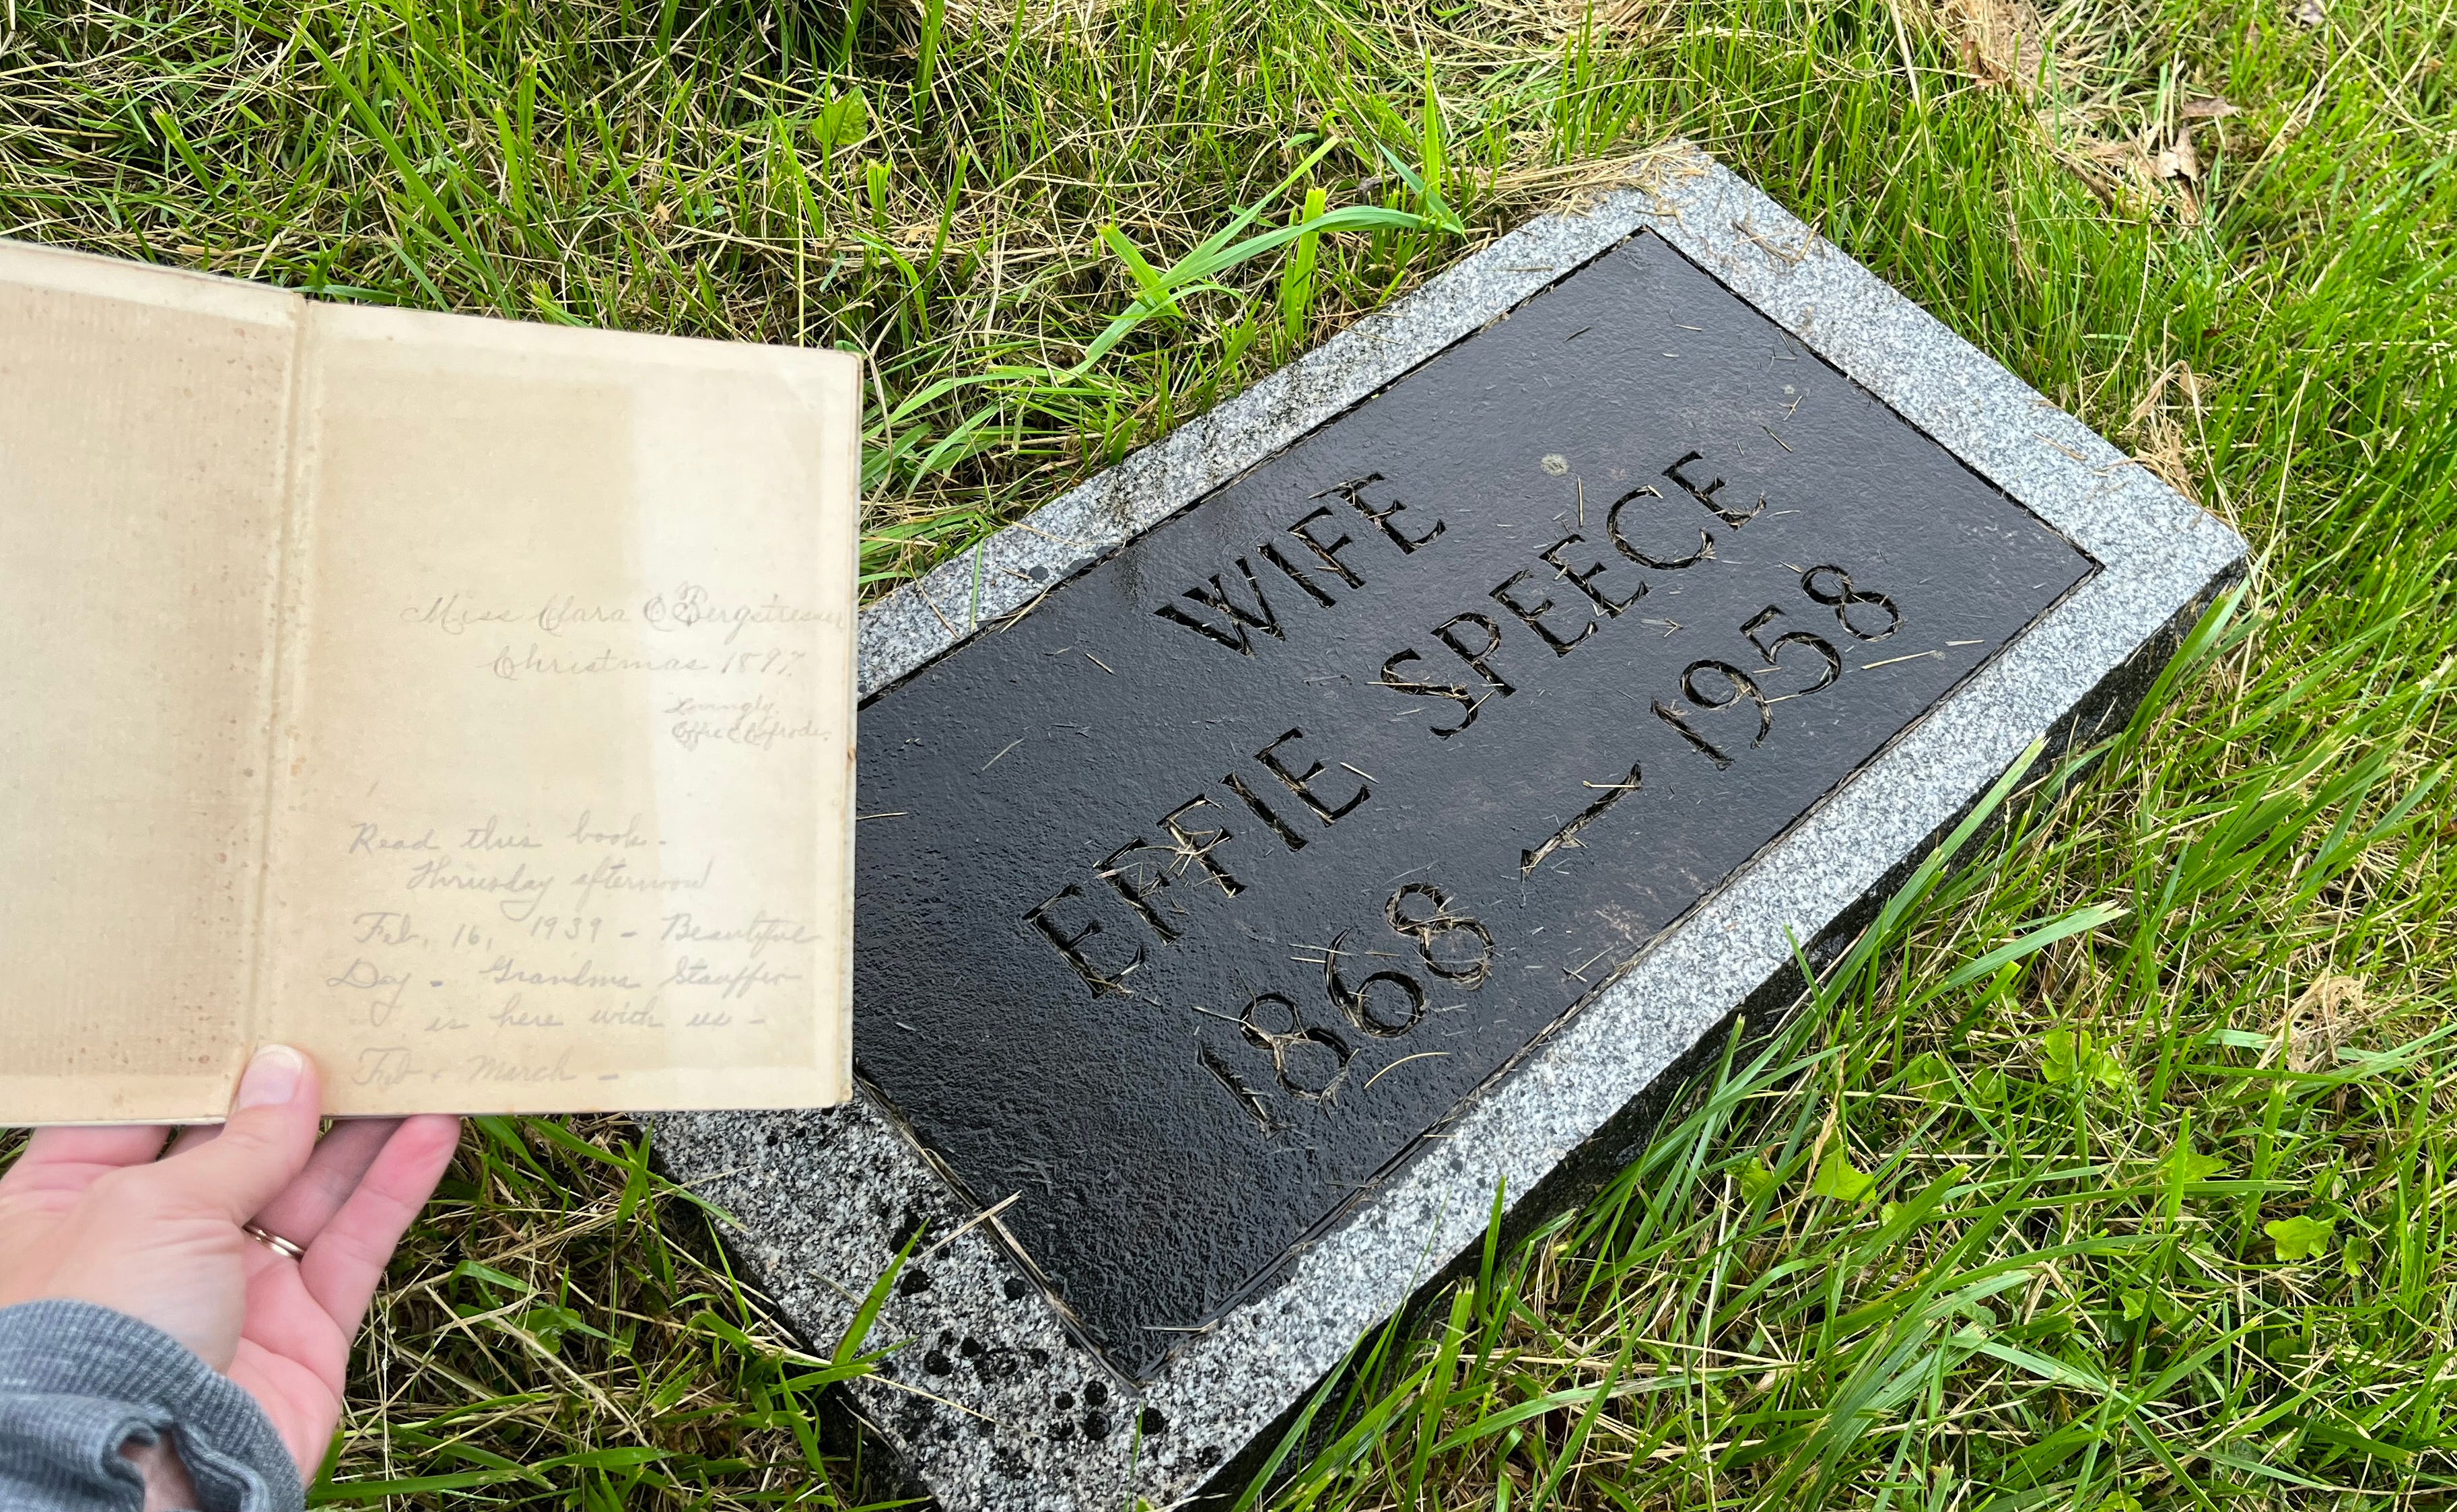 Miss Clara E Bergstresser
Christmas 1897.
Lovingly,
Effie
Read this book.
Thrusday afternoon
Feb, 16, 1939 - Beautiful
Day - Grandma Stauffer
is here with us -
Feb & March -
WIFE
EFFIE SPEECE
1868 - 1958